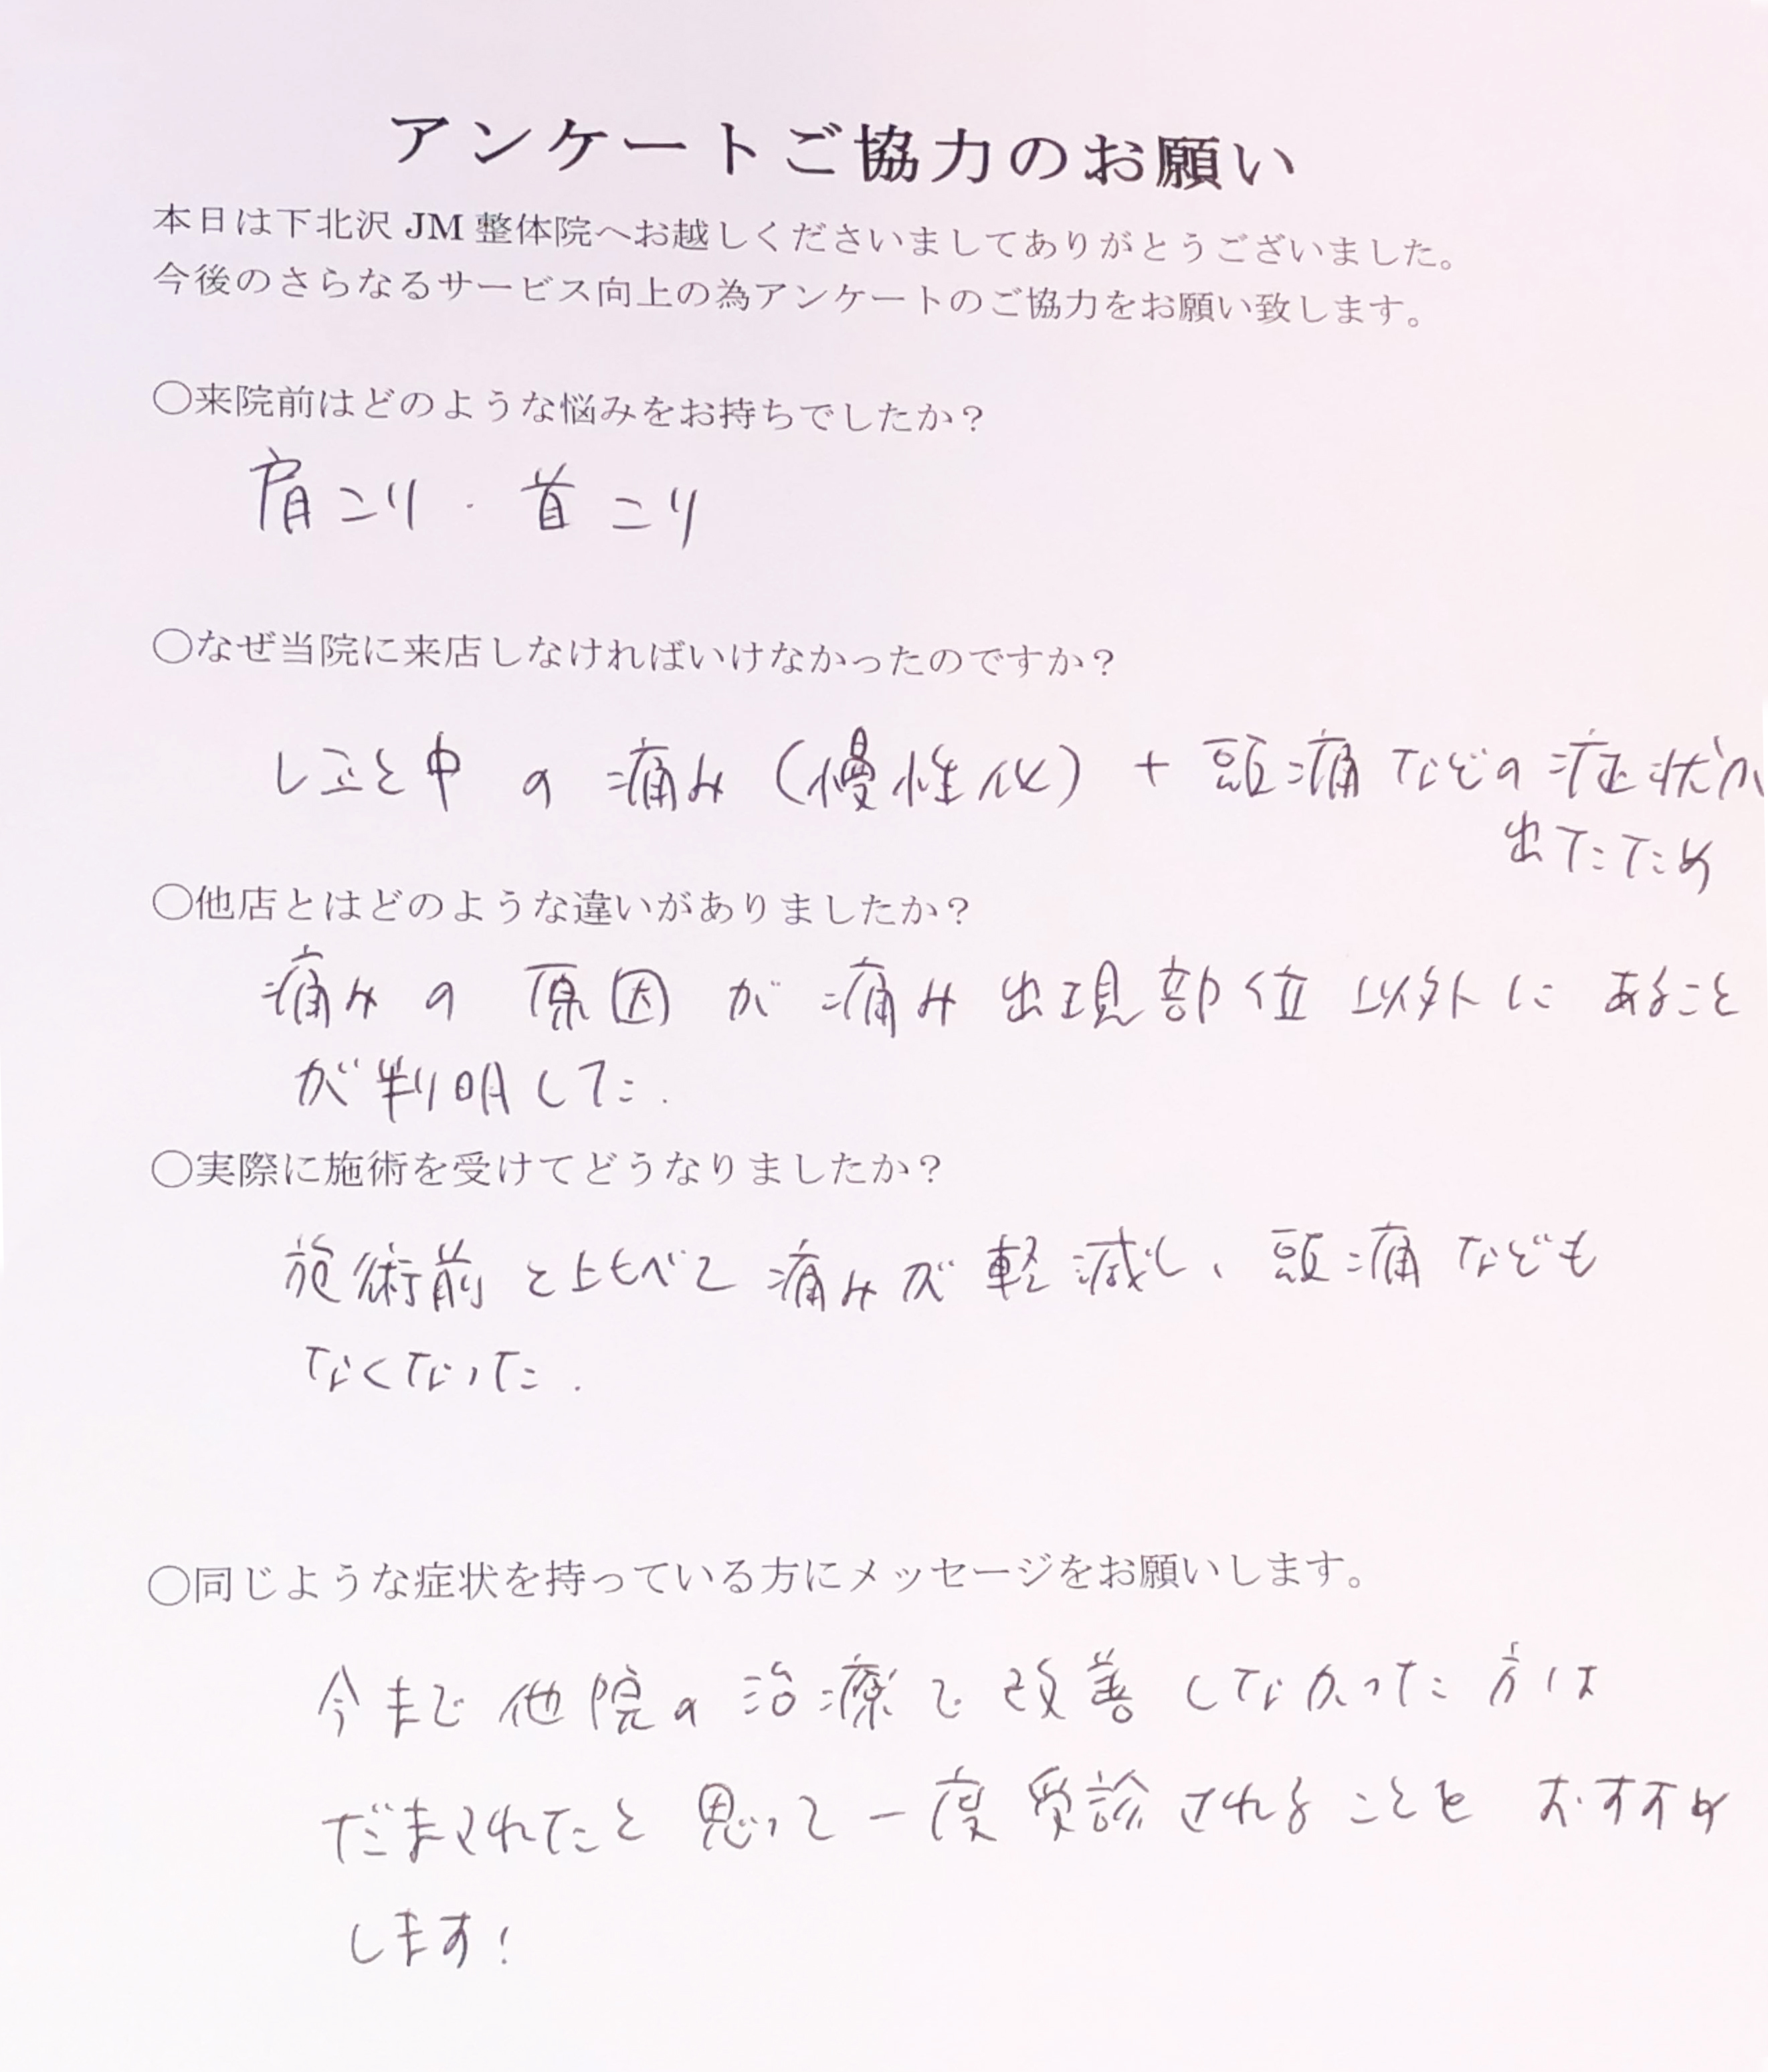 アンケートご協力のお願い
本日は下北沢 JM 整体院へお越しくださいましてありがとうございました。
今後のさらなるサービス向上の為アンケートのご協力をお願い致します。
○来院前はどのような悩みをお持ちでしたか？
肩こり・首こり
○なぜ当院に来店しなければいけなかったのですか？
しごと中の痛み(慢性化)+頭痛などの症状が
出てたため
○他店とはどのような違いがありましたか？
痛みの原因が痛み出現部位以外にあること
が判明した.
○実際に施術を受けてどうなりましたか？
施術前と比べて痛みが軽減し、頭痛なども
なくなった.
○同じような症状を持っている方にメッセージをお願いします。
今まで他院の治療で改善しなかった方は
だまされたと思って一度受診されることをおすすめ
します!